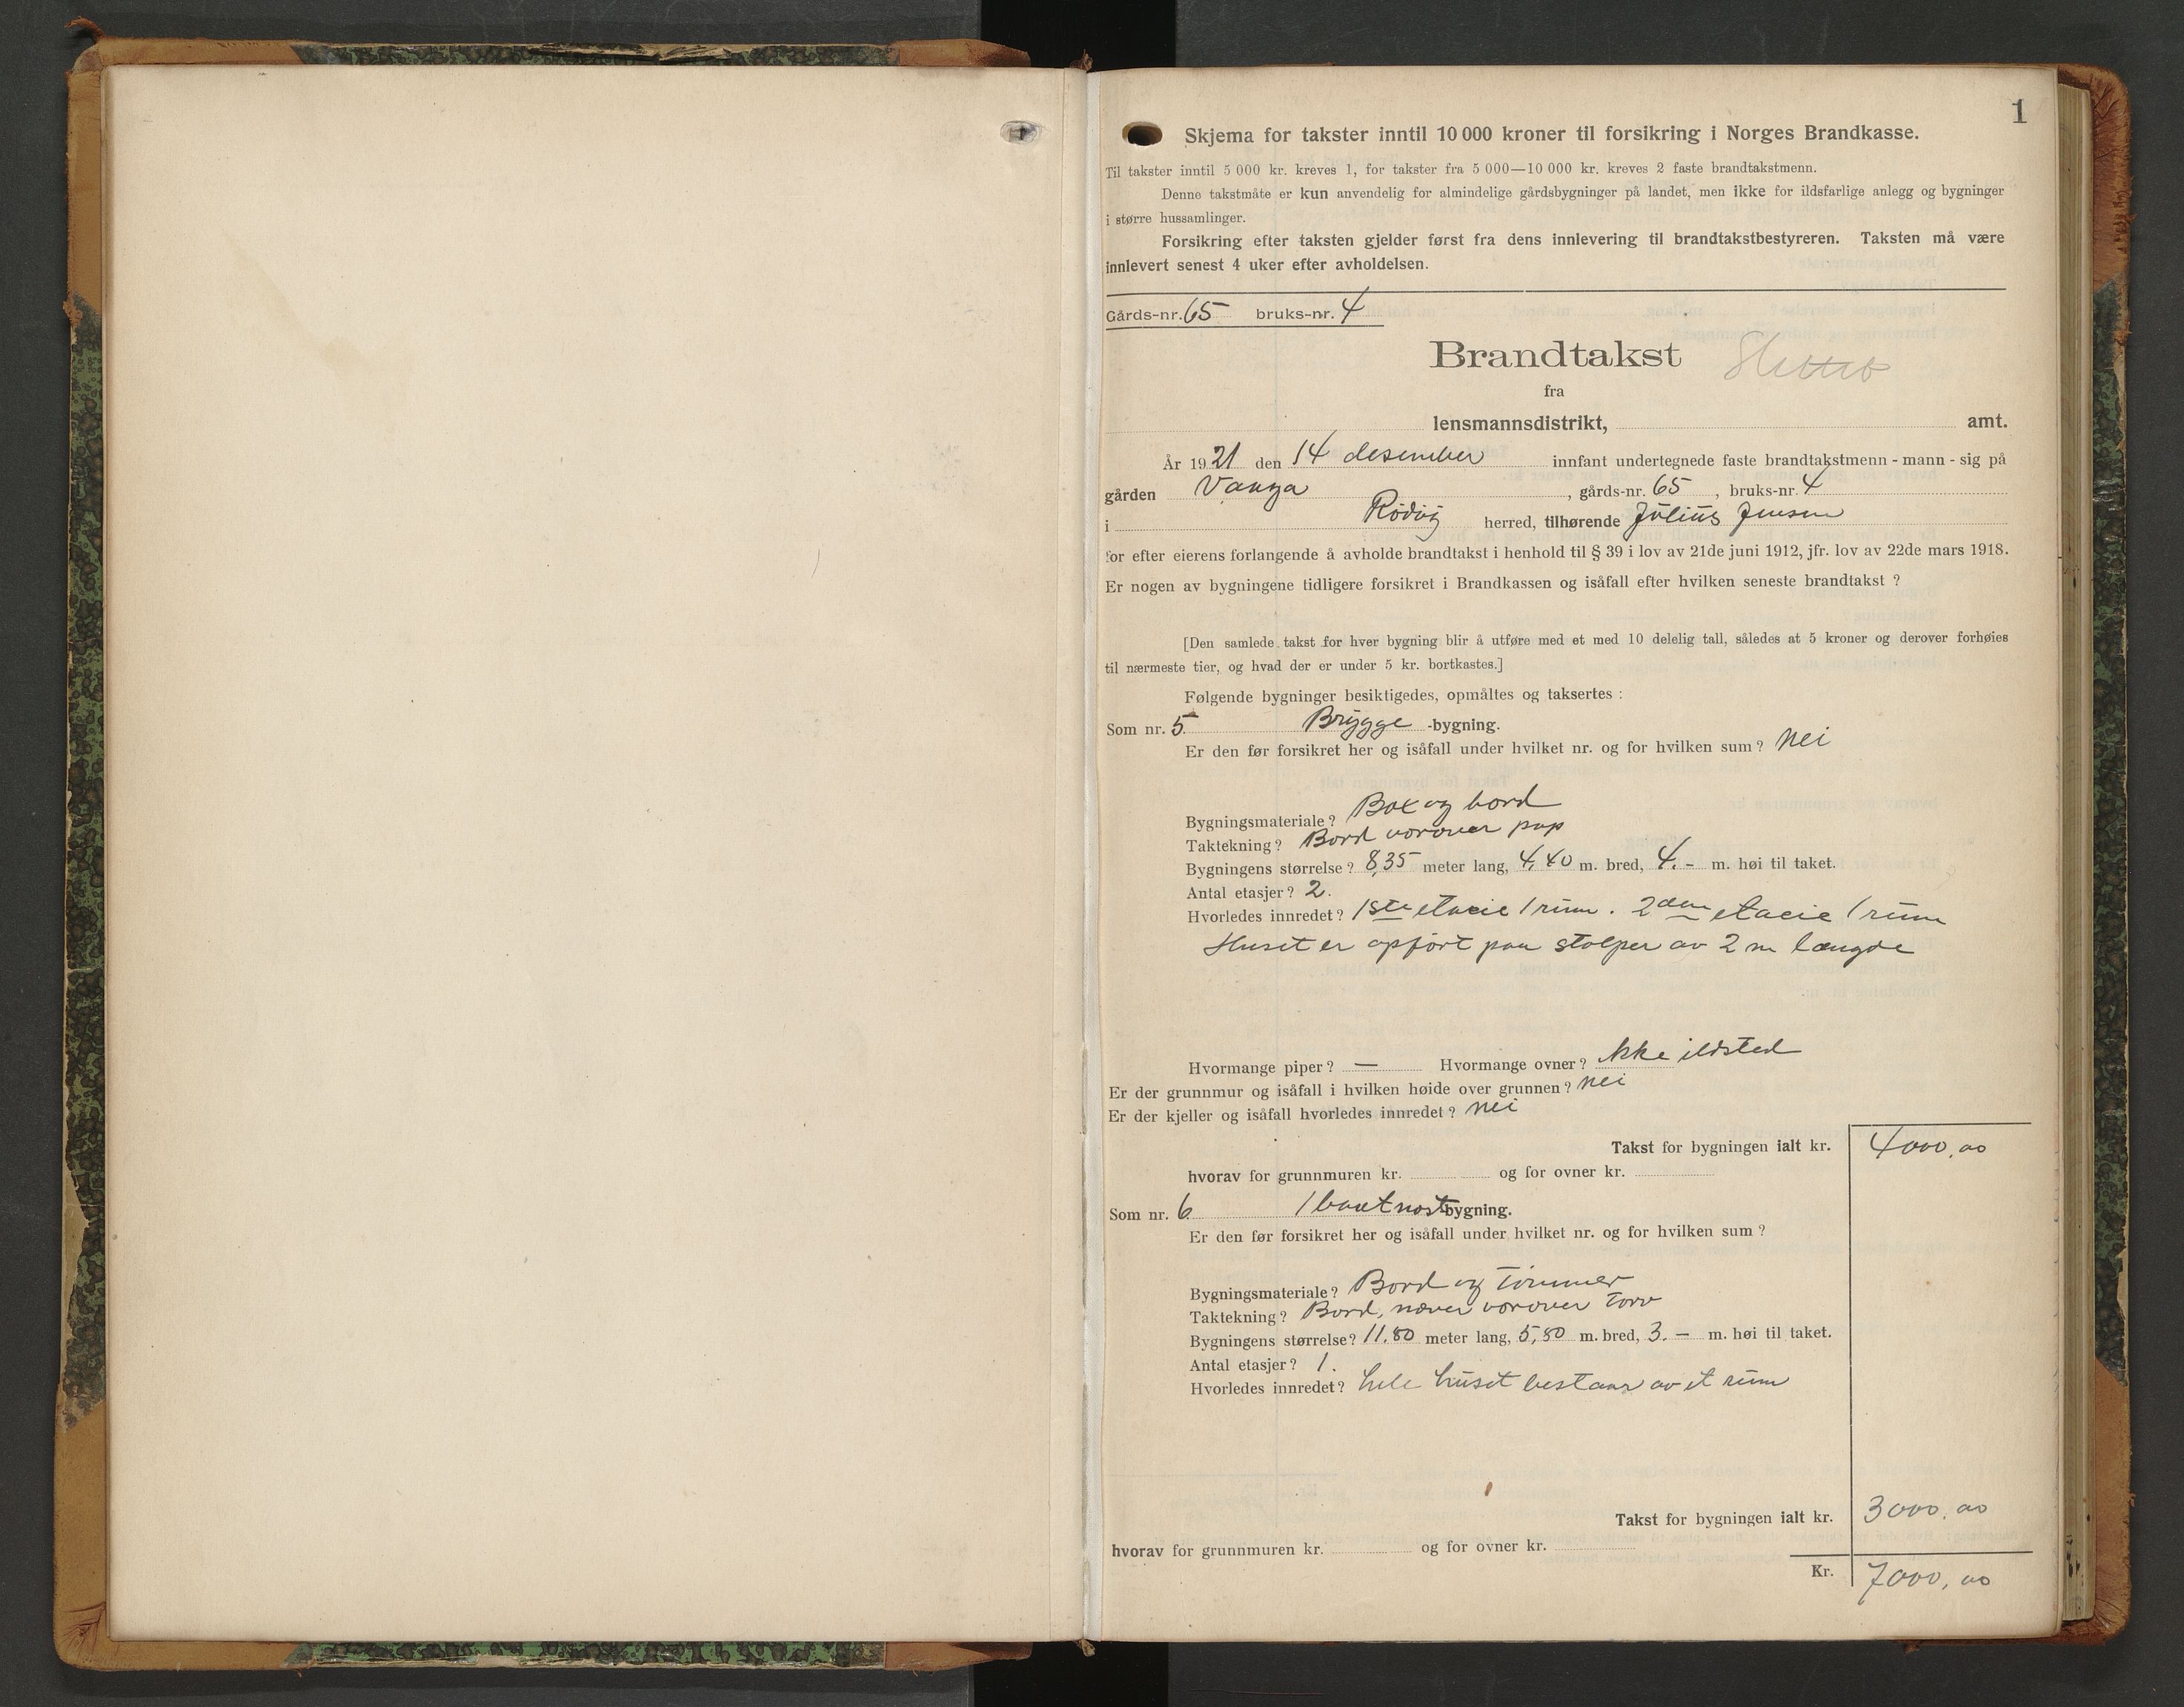 1
Skjema for takster inntil 10 000 kroner til forsikring i Norges Brandkasse.
Til takster inntil 5 000 kr. kreves 1, for takster fra 5 000—10 000 kr. kreves 2 faste brandtakstmenn.
Denne takstmåte er kun anvendelig for almindelige gårdsbygninger på landet, men ikke for ildsfarlige anlegg og bygninger
i større hussamlinger.
Forsikring efter taksten gjelder først fra dens innlevering til brandtakstbestyreren. Taksten må være
innlevert senest 4 uker efter avholdelsen.
Gårds-nr. 65 bruks-nr. 4
Brandtakst
fra
lensmannsdistrikt, amt.
År 1921 den 14 desember innfant undertegnede faste brandtakstmenn - mann - sig på
gården Vanga, gårds-nr. 65, bruks-nr. 4
i Rödöy herred, tilhørende Julius Jensen
for efter eierens forlangende å avholde brandtakst i henhold til § 39 i lov av 21de juni 1912, jfr. lov av 22de mars 1918.
Er nogen av bygningene tidligere forsikret i Brandkassen og isåfall efter hvilken seneste brandtakst ?
[Den samlede takst for hver bygning blir å utføre med et med 10 delelig tall, således at 5 kroner og derover forhøies
til nærmeste tier, og hvad der er under 5 kr. bortkastes.]
Følgende bygninger besiktigedes, opmåltes og taksertes :
Som nr. 5. Brygge -bygning.
Er den før forsikret her og isåfall under hvilket nr. og for hvilken sum ? nei
Bygningsmateriale ? og bord
Taktekning ? Bord vorover pap
Bygningens størrelse ? 8,35 meter lang, 4,40 m. bred, 4. - m. høi til taket.
Antal etasjer ? 2.
Hvorledes innredet ? 1ste etacie 1 rum. 2den etacie 1 rum
Huset er opfört paa stolper av 2 m længde
Hvormange piper ? — Hvormange ovner ? ikke ildsted
Er der grunnmur og isåfall i hvilken høide over grunnen ? nei
Er der kjeller og isåfall hvorledes innredet ? nei
Takst for bygningen ialt kr. 4000,00
hvorav for grunnmuren kr. og for ovner kr.
Som nr. 6 1 baatnost bygning.
Er den før forsikret her og isåfall under hvilket nr. og for hvilken sum ?
Bygningsmateriale ? Bord og tömmer
Taktekning ? Bord, næver vorover torv
Bygningens størrelse ? 11,80 meter lang, 5,80 m. bred, 3. — m. høi til taket.
Antal etasjer ? 1.
Hvorledes innredet ? hele huset bestaar av et rum
Takst for bygningen ialt kr. 3000,00
hvorav for grunnmuren kr. og for ovner kr.
Kr. 7000,00